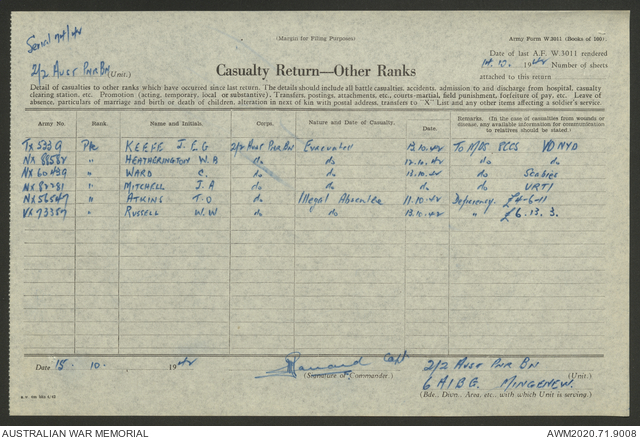 Serial 74/42
(Margin for Filing Purposes)
Army Form W.3011 (Books of 100).
2/2 Aust Pnr Bn (Unit.)
Date of last A.F. W.3011 rendered
14.10. 1942 Number of sheets
attached to this return
Casualty Return—Other Ranks
Detail of casualties to other ranks which have occurred since last return. The details should include all battle casualties, accidents, admission to and discharge from hospital, casualty
clearing station, etc. Promotion (acting, temporary, local or substantive). Transfers, postings, attachments, etc., courts-martial, field punishment, forfeiture of pay, etc. Leave of
absence, particulars of marriage and birth or death of children, alteration in next of kin with postal address, transfers to "X" List and any other items affecting a soldier's service.
Army No. Rank. Name and Initials. Corps. Nature and Date of Casualty. Date. Remarks. (In the case of casualties from wounds or disease, any available information for communication to relatives should be stated.)
TX5339 Pte KEEFE J.E.G 2/2 Aust Pnr Bn Evacuated 13.10.42 To MDS PCCS VD NYD
NX88582 " HEATHERINGTON W.A do do 12.10.42 do do
NX60439 " WARD C. do do 12.10.42 do Scabies
NX82281 " MITCHELL J.A do do do URTI
NX56547 " ATKINS T.O do Illegal Absentee 11.10.42 Deficiency £4-6-11
VX73357 " RUSSELL W.W do do 13.10.42 " £6.13.3.
Date 15. 10. 1942
Capt
(Signature of Commander)
2/2 AUST PNR BN (Unit.)
6 AIBG. MINGENEW.
(Bde., Divn., Area, etc., with which Unit is serving.)
AUSTRALIAN WAR MEMORIAL
AWM2020.71.9008